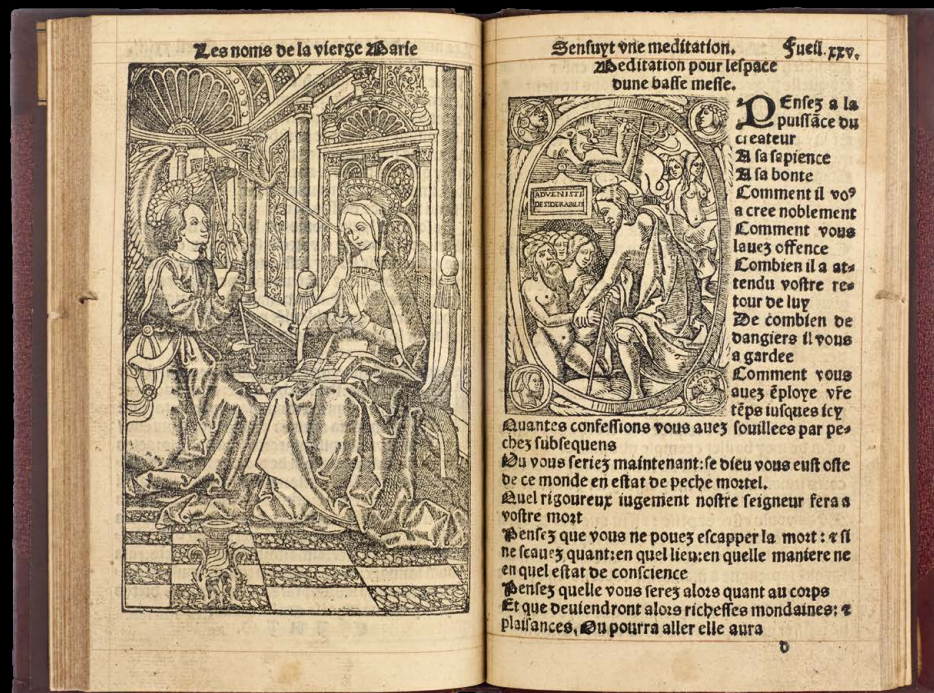 Les noms de la vierge Marie
Sensuyt vne meditation. Fueil. xxv.
Meditation pour lespace
dune basse messe.
PEnsez a la
puissãce du
createur
A sa sapience
A sa bonte
Comment il voꝰ
a cree noblement
Comment vous
lauez offence
Combien il a at⸗
tendu vostre re⸗
tour de luy
De combien de
dangiers il vous
a gardee
Comment vous
auez ẽploye vr̃e
tẽps iusques icy
ADVENISTI
DESIDERABILIS
Quantes confessions vous auez souillees par pe⸗
chez subsequens
Ou vous seriez maintenant: se dieu vous eust oste
de ce monde en estat de peche mortel.
Quel rigoureux iugement nostre seigneur fera a
vostre mort
Pensez que vous ne pouez escapper la mort : ⁊ si
ne scauez quant: en quel lieu: en quelle maniere ne
en quel estat de conscience
Pensez quelle vous serez alors quant au corps
Et que deuiendront alors richesses mondaines: ⁊
plaisances, Ou pourra aller elle aura
d